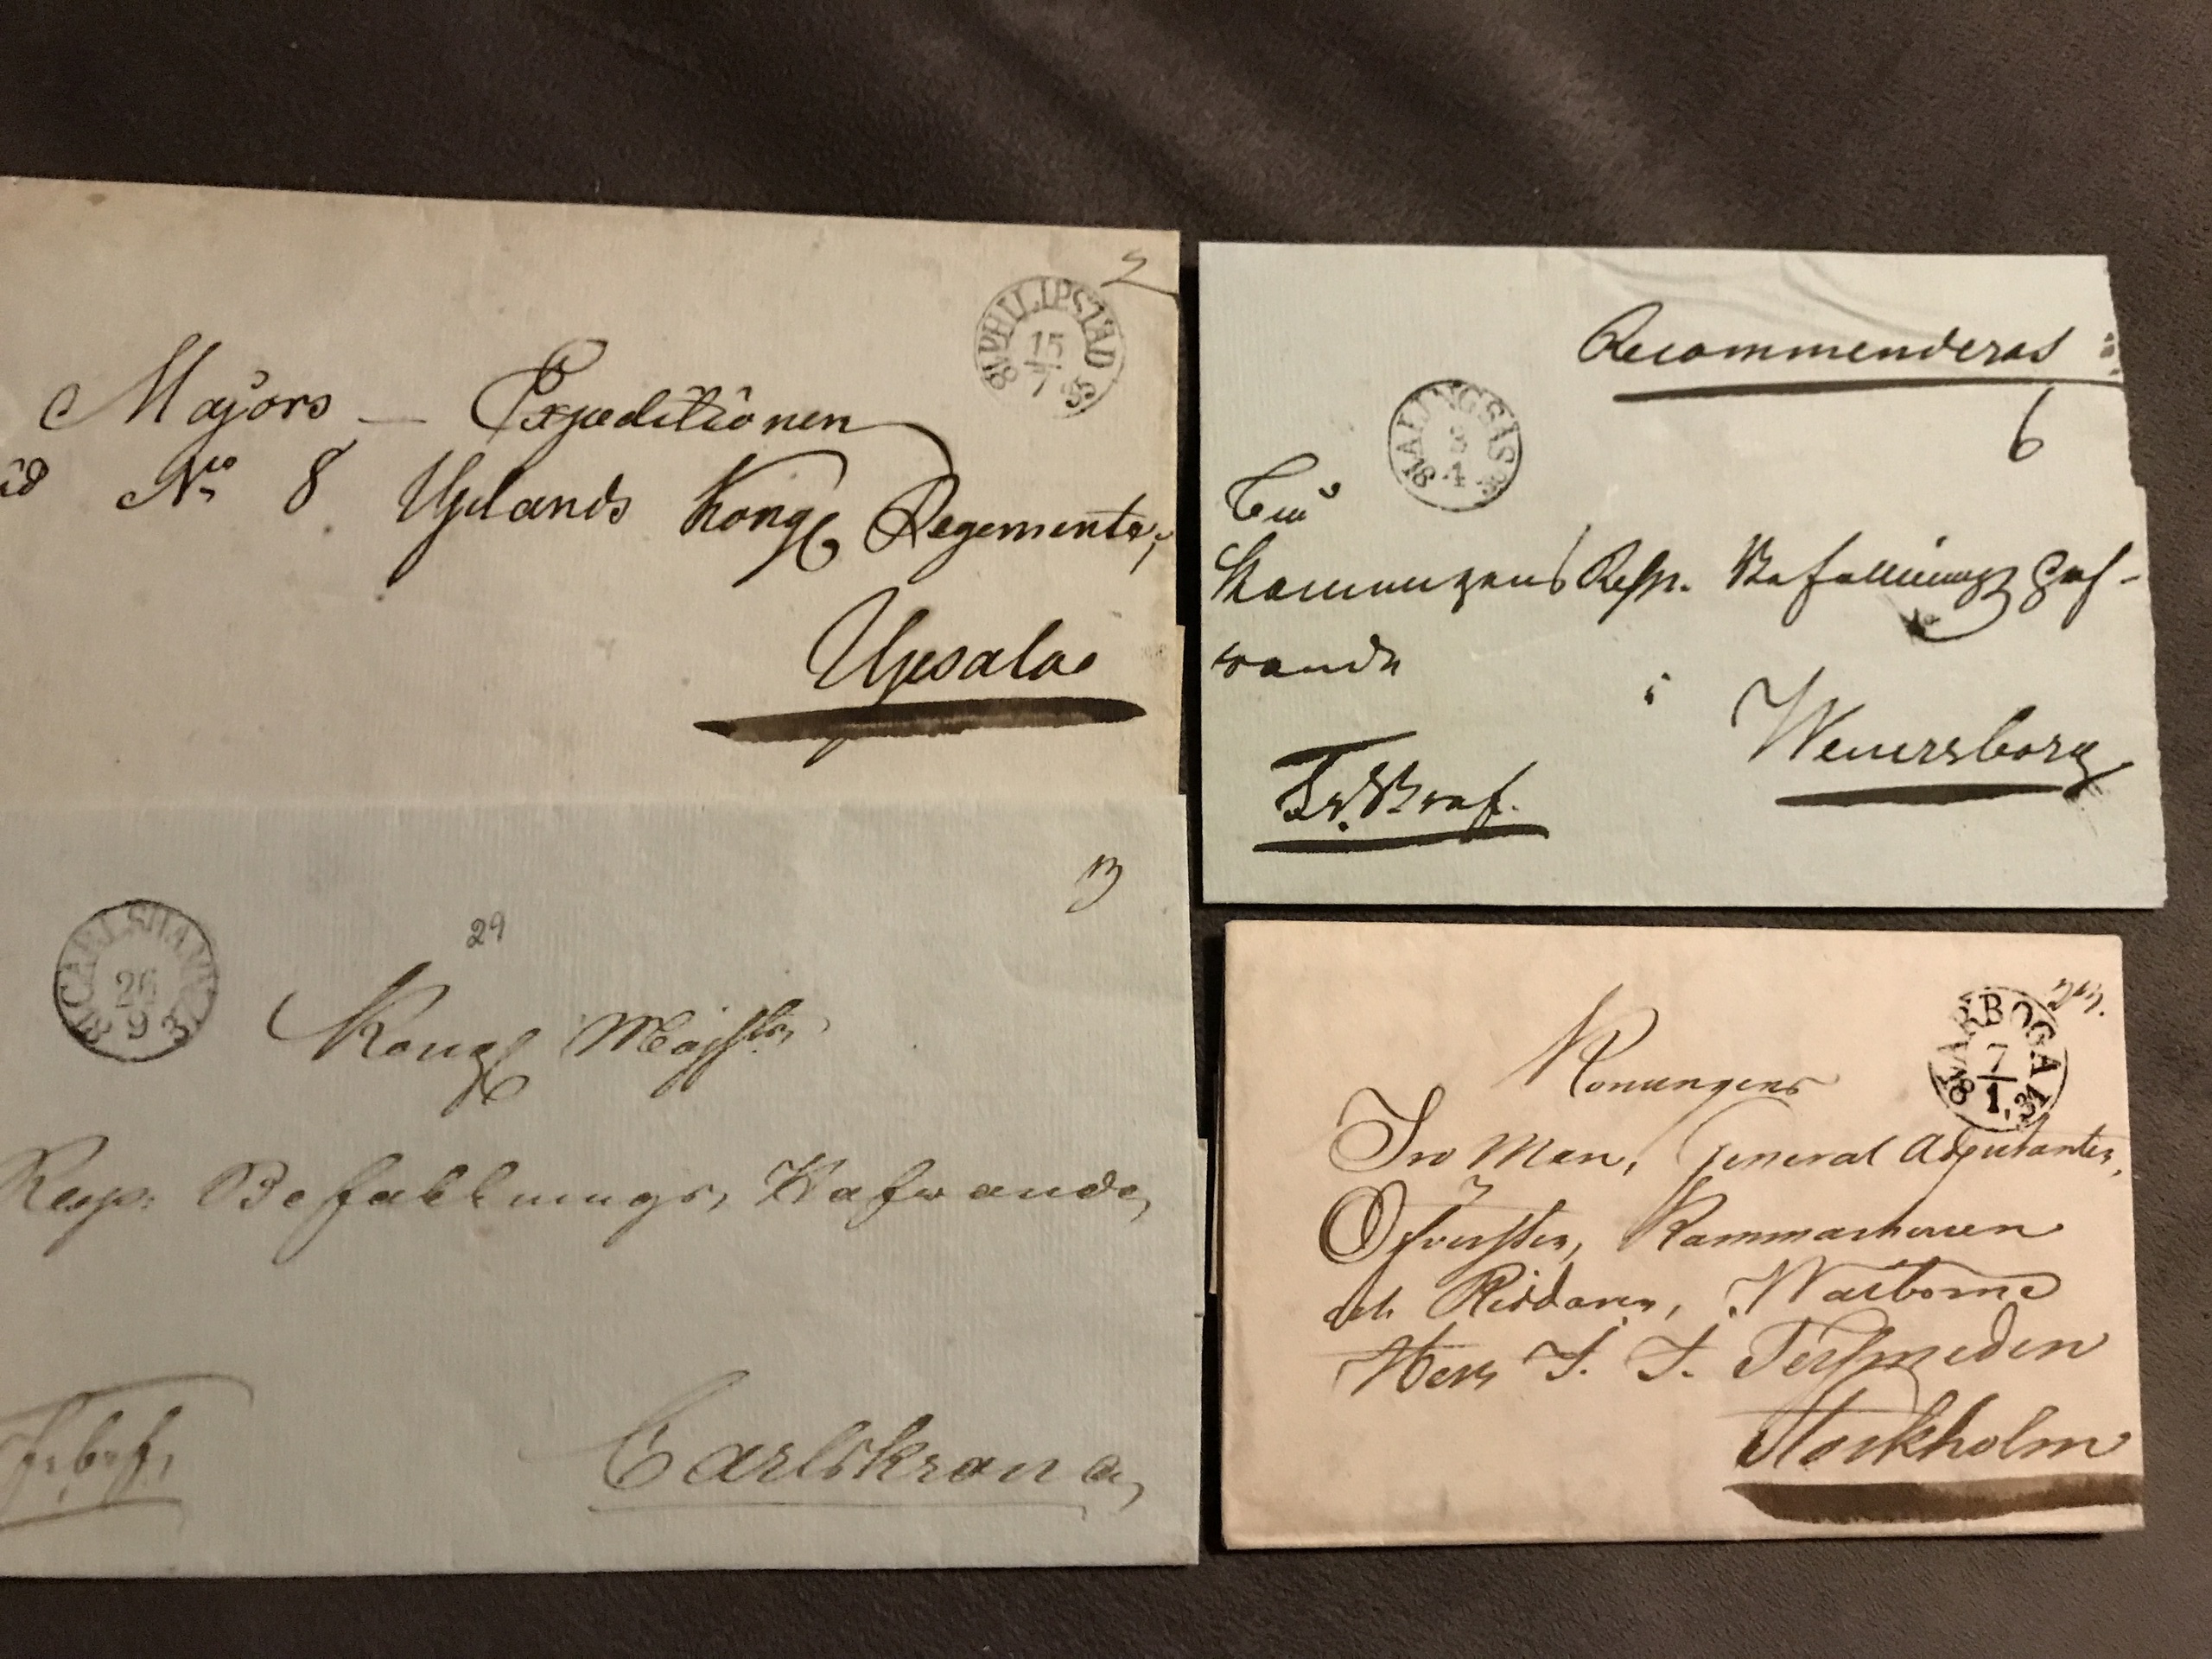 PHILIPSTAD
15
7
Majors — Expeditionen
id No 8 Uplands Kongl Regemente,
Upsala
Recommenderas
ALINGSÅS
3
4
6
Till
Konungens Resp. Befallningshaf-
wande
i Wenersborg
Fr. Bref.
CARLSHAMN
26
9
29
13
Kongl Majsts
Resp: Befallnings, Hafwande,
Fr. bref,
Carlskrona,
ARBOGA
7
1, 31
Konungens
Tro Man, General Adjutanten,
Öfversten, Kammarherren
och Riddaren, Wälborne
Herr J. J. Tersmeden
Stockholm